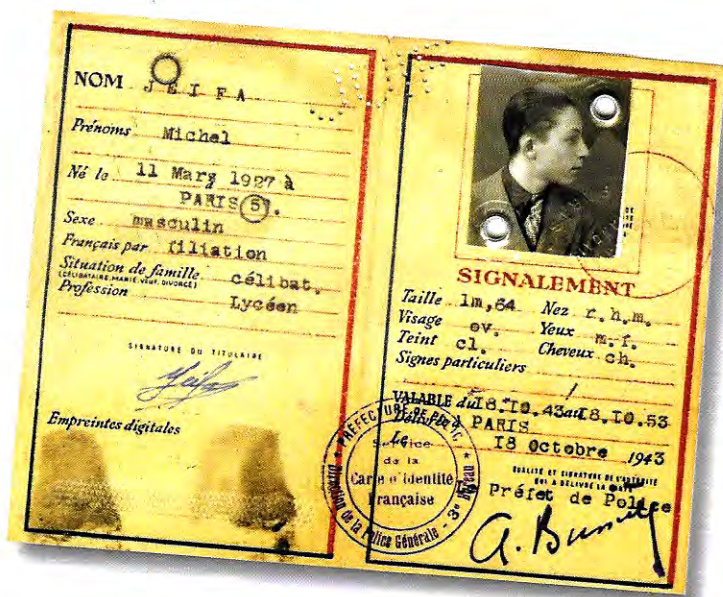 NOM JEIFA
Prénoms Michel
Né le 11 Mars 1927 à
PARIS (5).
Sexe masculin
Français par filiation
Situation de famille célibat.
(CÉLIBATAIRE, MARIÉ, VEUF, DIVORCÉ)
Profession Lycéen
SIGNATURE DU TITULAIRE
Jeifa
Empreintes digitales
SIGNALEMENT
Taille 1m,64 Nez r.h.m.
Visage ov. Yeux m.f.
Teint cl. Cheveux ch.
Signes particuliers /
VALABLE du I8.I0.43 au I8.I0.53
PARIS
Le I8 Octobre 1943
QUALITÉ ET SIGNATURE DE L'AUTORITÉ
QUI A DÉLIVRÉ LA CARTE
Préfet de Police
PREFECTURE DE POLICE
Service
de la
Carte d'Identité
Française
Direction de la Police Générale - 3e Bureau